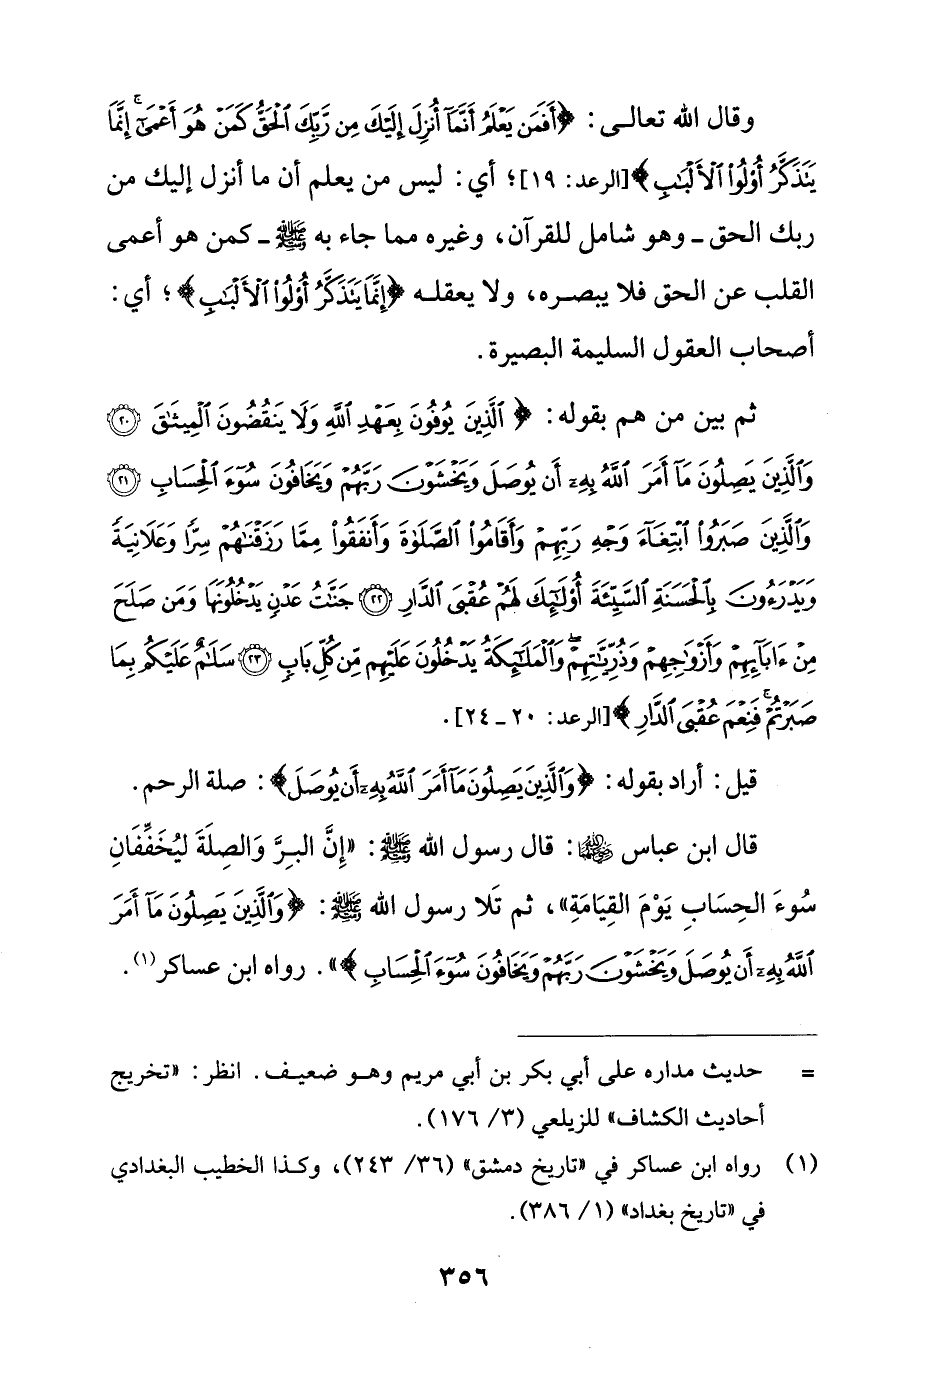 وقال الله تعالى: ﴿أَفَمَن يَعْلَمُ أَنَّمَآ أُنزِلَ إِلَيْكَ مِن رَّبِّكَ ٱلْحَقُّ كَمَنْ هُوَ أَعْمَىٰٓۚ إِنَّمَا
يَتَذَكَّرُ أُوْلُواْ ٱلْأَلْبَٰبِ﴾ [الرعد: ١٩]؛ أي: ليس من يعلم أن ما أنزل إليك من
ربك الحق ـ وهو شامل للقرآن، وغيره مما جاء به ﷺ ـ كمن هو أعمى
القلب عن الحق فلا يبصره، ولا يعقله ﴿إِنَّمَا يَتَذَكَّرُ أُوْلُواْ ٱلْأَلْبَٰبِ﴾؛ أي:
أصحاب العقول السليمة البصيرة.
ثم بين من هم بقوله: ﴿ٱلَّذِينَ يُوفُونَ بِعَهْدِ ٱللَّهِ وَلَا يَنقُضُونَ ٱلْمِيثَٰقَ ٢٠
وَٱلَّذِينَ يَصِلُونَ مَآ أَمَرَ ٱللَّهُ بِهِۦٓ أَن يُوصَلَ وَيَخْشَوْنَ رَبَّهُمْ وَيَخَافُونَ سُوٓءَ ٱلْحِسَابِ ٢١
وَٱلَّذِينَ صَبَرُواْ ٱبْتِغَآءَ وَجْهِ رَبِّهِمْ وَأَقَامُواْ ٱلصَّلَوٰةَ وَأَنفَقُواْ مِمَّا رَزَقْنَٰهُمْ سِرًّا وَعَلَانِيَةً
وَيَدْرَءُونَ بِٱلْحَسَنَةِ ٱلسَّيِّئَةَ أُوْلَٰٓئِكَ لَهُمْ عُقْبَى ٱلدَّارِ ٢٢ جَنَّٰتُ عَدْنٍ يَدْخُلُونَهَا وَمَن صَلَحَ
مِنْ ءَابَآئِهِمْ وَأَزْوَٰجِهِمْ وَذُرِّيَّٰتِهِمْۖ وَٱلْمَلَٰٓئِكَةُ يَدْخُلُونَ عَلَيْهِم مِّن كُلِّ بَابٍ ٢٣ سَلَٰمٌ عَلَيْكُم بِمَا
صَبَرْتُمْۚ فَنِعْمَ عُقْبَى ٱلدَّارِ﴾ [الرعد: ٢٠ ـ ٢٤].
قيل: أراد بقوله: ﴿وَٱلَّذِينَ يَصِلُونَ مَآ أَمَرَ ٱللَّهُ بِهِۦٓ أَن يُوصَلَ﴾: صلة الرحم.
قال ابن عباس ﵄: قال رسول الله ﷺ: «إِنَّ البِرَّ وَالصِلَةَ لَيُخَفِّفَانِ
سُوءَ الحِسَابِ يَوْمَ القِيَامَةِ»، ثم تَلا رسول الله ﷺ: ﴿وَٱلَّذِينَ يَصِلُونَ مَآ أَمَرَ
ٱللَّهُ بِهِۦٓ أَن يُوصَلَ وَيَخْشَوْنَ رَبَّهُمْ وَيَخَافُونَ سُوٓءَ ٱلْحِسَابِ﴾». رواه ابن عساكر(١).
= حديث مداره على أبي بكر بن أبي مريم وهو ضعيف. انظر: «تخريج
أحاديث الكشاف» للزيلعي (٣/ ١٧٦).
(١) رواه ابن عساكر في «تاريخ دمشق» (٣٦/ ٢٤٣)، وكذا الخطيب البغدادي
في «تاريخ بغداد» (١/ ٣٨٦).
٣٥٦